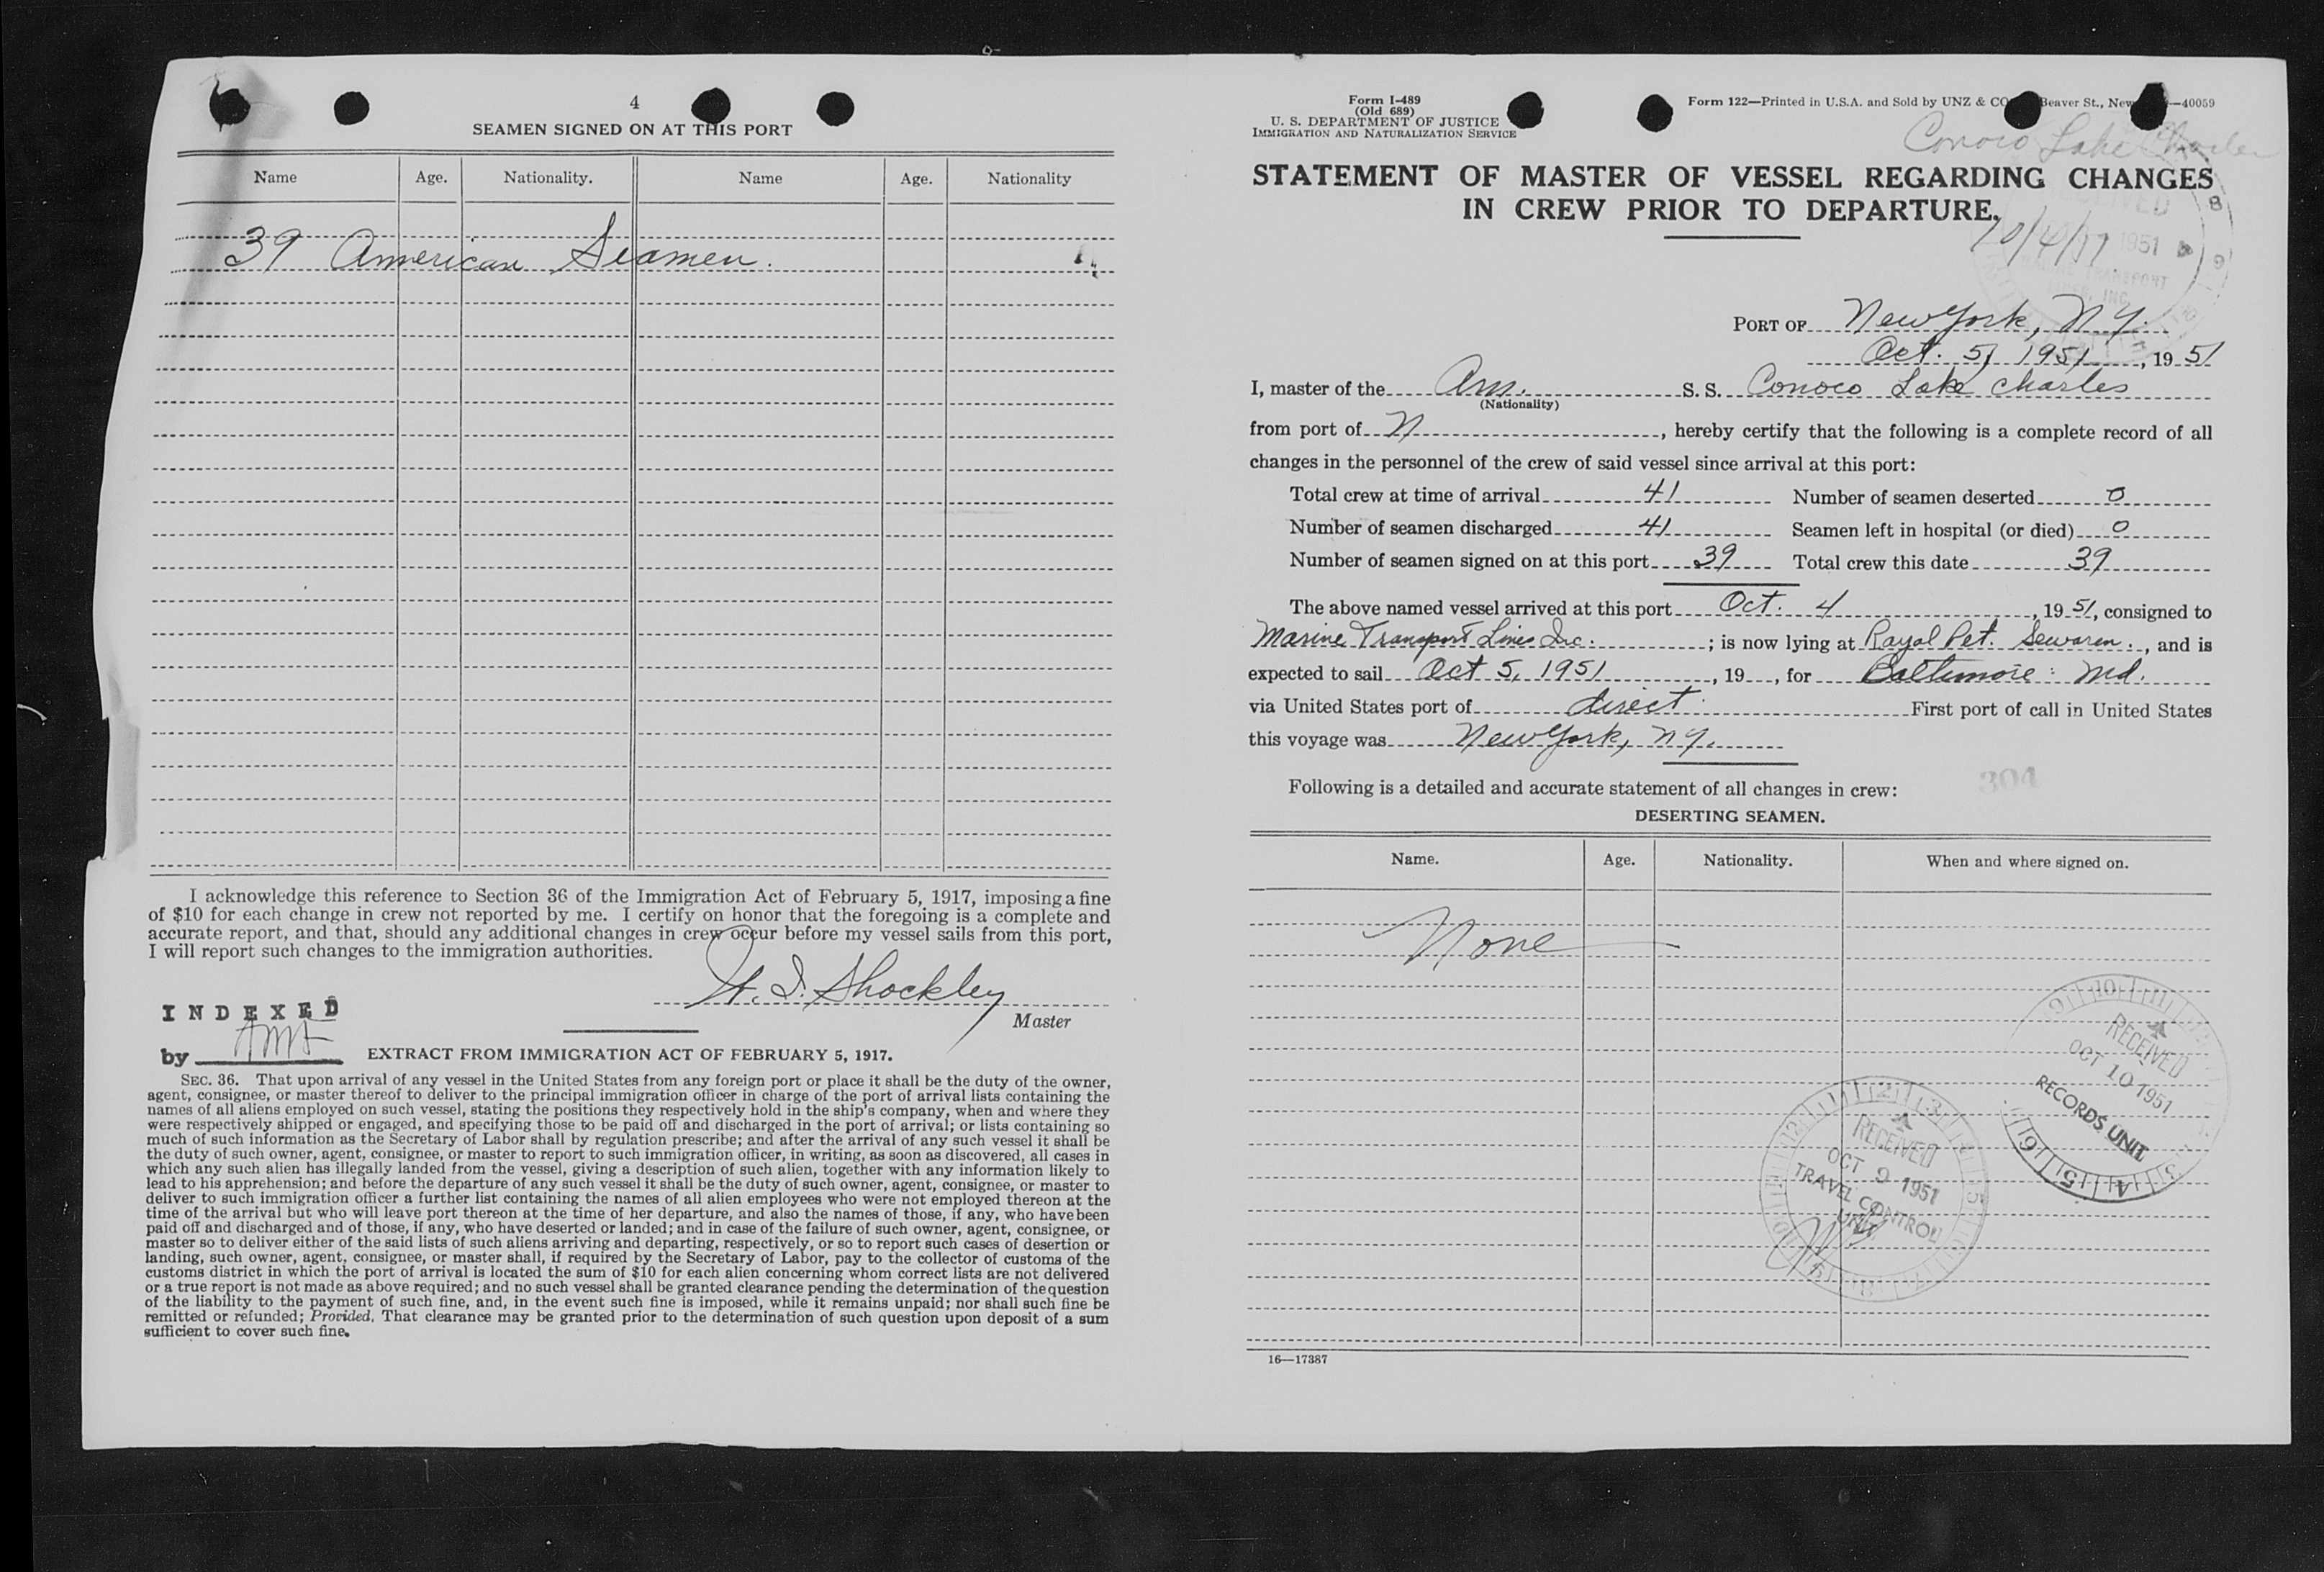 4
SEAMEN SIGNED ON AT THIS PORT
Name Age. Nationality. Name Age. Nationality
39 American Seamen.
I acknowledge this reference to Section 36 of the Immigration Act of February 5, 1917, imposing a fine
of $10 for each change in crew not reported by me. I certify on honor that the foregoing is a complete and
accurate report, and that, should any additional changes in crew occur before my vessel sails from this port,
I will report such changes to the immigration authorities.
W. I. Shockley
Master
INDEXED
by
EXTRACT FROM IMMIGRATION ACT OF FEBRUARY 5, 1917.
SEC. 36. That upon arrival of any vessel in the United States from any foreign port or place it shall be the duty of the owner,
agent, consignee, or master thereof to deliver to the principal immigration officer in charge of the port of arrival lists containing the
names of all aliens employed on such vessel, stating the positions they respectively hold in the ship's company, when and where they
were respectively shipped or engaged, and specifying those to be paid off and discharged in the port of arrival; or lists containing so
much of such information as the Secretary of Labor shall by regulation prescribe; and after the arrival of any such vessel it shall be
the duty of such owner, agent, consignee, or master to report to such immigration officer, in writing, as soon as discovered, all cases in
which any such alien has illegally landed from the vessel, giving a description of such alien, together with any information likely to
lead to his apprehension; and before the departure of any such vessel it shall be the duty of such owner, agent, consignee, or master to
deliver to such immigration officer a further list containing the names of all alien employees who were not employed thereon at the
time of the arrival but who will leave port thereon at the time of her departure, and also the names of those, if any, who have been
paid off and discharged and of those, if any, who have deserted or landed; and in case of the failure of such owner, agent, consignee, or
master so to deliver either of the said lists of such aliens arriving and departing, respectively, or so to report such cases of desertion or
landing, such owner, agent, consignee, or master shall, if required by the Secretary of Labor, pay to the collector of customs of the
customs district in which the port of arrival is located the sum of $10 for each alien concerning whom correct lists are not delivered
or a true report is not made as above required; and no such vessel shall be granted clearance pending the determination of the question
of the liability to the payment of such fine, and, in the event such fine is imposed, while it remains unpaid; nor shall such fine be
remitted or refunded; Provided, That clearance may be granted prior to the determination of such question upon deposit of a sum
sufficient to cover such fine.
Form I-489
(Old 689)
U. S. DEPARTMENT OF JUSTICE
IMMIGRATION AND NATURALIZATION SERVICE
Form 122—Printed in U.S.A. and Sold by UNZ & CO Beaver St., New —40059
Conoco Lake Charles
STATEMENT OF MASTER OF VESSEL REGARDING CHANGES
IN CREW PRIOR TO DEPARTURE.
PORT OF New York, N.Y.
Oct. 5, 1951, 19 51
I, master of the Am. S. S. Conoco Lake Charles
(Nationality)
from port of N , hereby certify that the following is a complete record of all
changes in the personnel of the crew of said vessel since arrival at this port:
Total crew at time of arrival 41 Number of seamen deserted 0
Number of seamen discharged 41 Seamen left in hospital (or died) 0
Number of seamen signed on at this port 39 Total crew this date 39
The above named vessel arrived at this port Oct. 4, 19 51, consigned to
Marine Transport Lines Inc. ; is now lying at Royal Pet. Sewaren., and is
expected to sail Oct 5, 1951, 19 , for Baltimore Md.
via United States port of direct. First port of call in United States
this voyage was New York, N.Y.
304
Following is a detailed and accurate statement of all changes in crew:
DESERTING SEAMEN.
Name. Age. Nationality. When and where signed on.
None
RECEIVED
OCT 10 1951
RECORDS UNIT
RECEIVED
OCT 9 1951
TRAVEL CONTROL
UNIT
16—17387